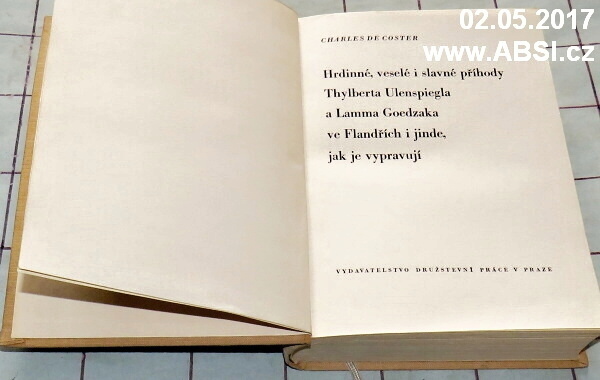 02.05.2017
www.ABSI.cz
CHARLES DE COSTER
Hrdinné, veselé i slavné příhody
Thylberta Ulenspiegla
a Lamma Goedzaka
ve Flandřích i jinde,
jak je vypravují
VYDAVATELSTVO DRUŽSTEVNÍ PRÁCE V PRAZE